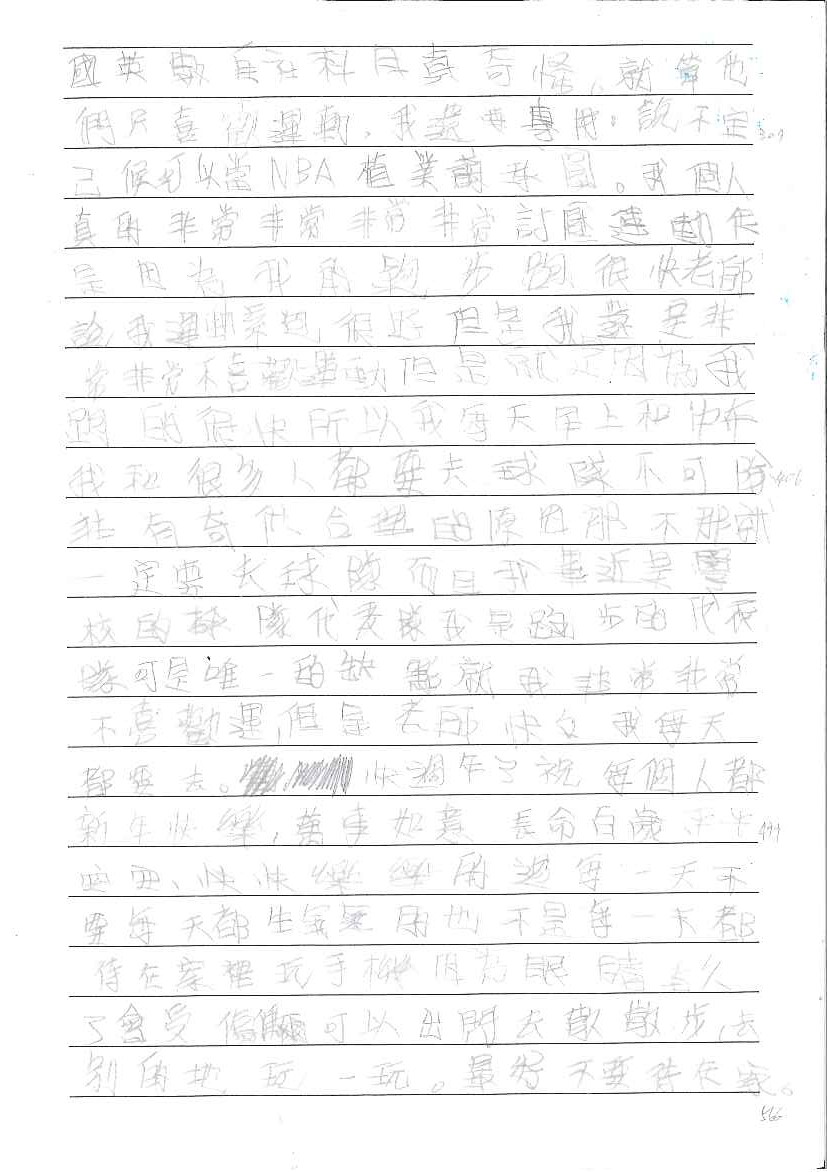 國英數自社科目真奇怪,就算他
們只喜歡運動,我還要專附:說不定 309
己候可以當NBA植業藍球員。我個人
真的非常非常非常非常討厭運動但
是因為我的跑步跑很快老師
說我運動系翅很好但是我還是非
常非常不喜歡運動但是就是因為我
跑的很快所以我每天早上和中午
我和很多人都要去球隊不可 406
有奇他合理的原因那不那就
一定要去球隊而且我畢近是學
校的球隊代麦隊我是跑步的代表
隊可是唯一的缺點就我非常非常
不喜歡運,但是老師快自我每天
都要去。快過年了祝每個人都
新年快樂,萬事如意長命百歲平平 499
西西、快快樂樂的過每一天不
要每天都生氣氣用也不是每一天都
待在家裡玩手機因為眼睛太久
了會受傷可以出門去散散步,去
別的地玩一玩。最好不要待在家。
566